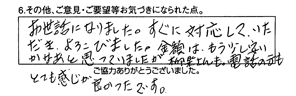 6.その他、ご意見・ご要望等お気づきになられた点。
お世話になりました。すぐに対応して、いた
だき、よろこびました。金額は、もう少し安い
かなあと思っていましたが
電話の方も
とても感じが良かったです。
ご協力ありがとうございました。